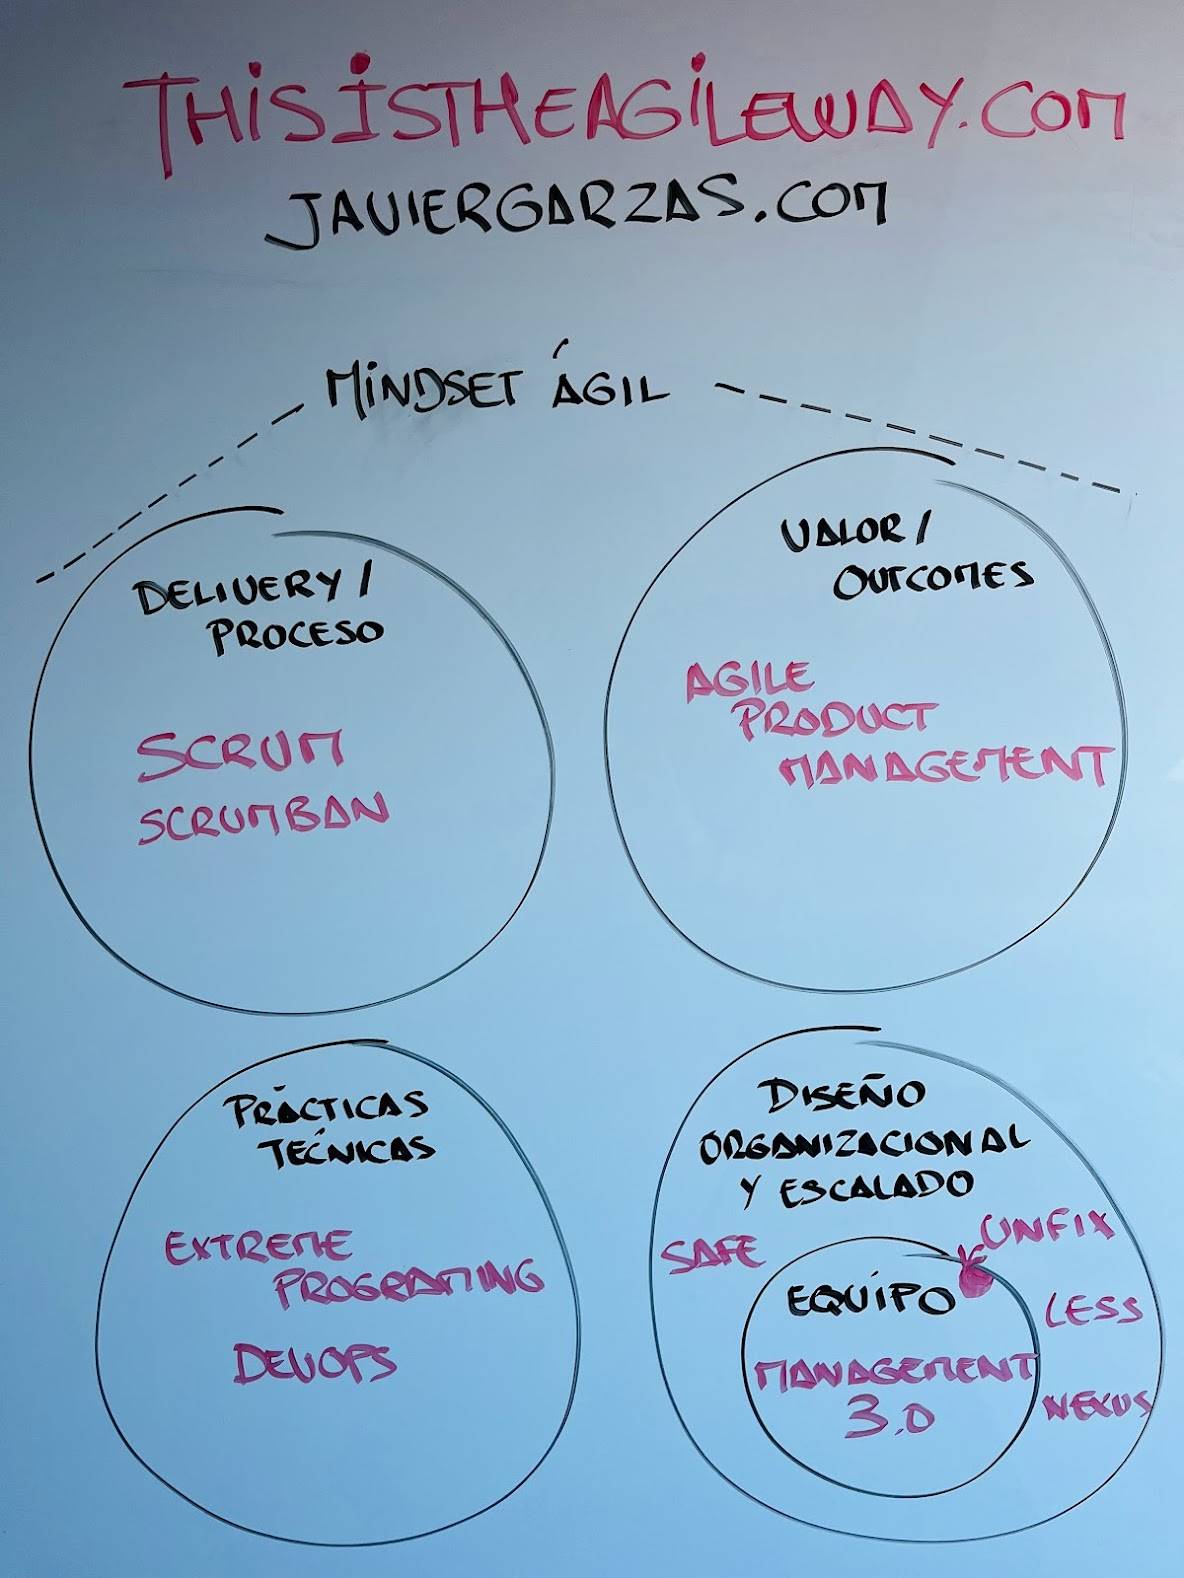 THISISTHEAGILEWAY.COM
JAVIERGARZAS.COM
MINDSET ÁGIL
DELIVERY/
PROCESO
SCRUM
SCRUMBAN
VALOR/
OUTCOMES
AGILE
PRODUCT
MANAGEMENT
PRÁCTICAS
TÉCNICAS
EXTREME
PROGRAMING
DEVOPS
DISEÑO
ORGANIZACIONAL
Y ESCALADO
SAFE
UNFIX
LESS
NEXUS
EQUIPO
MANAGEMENT
3.0